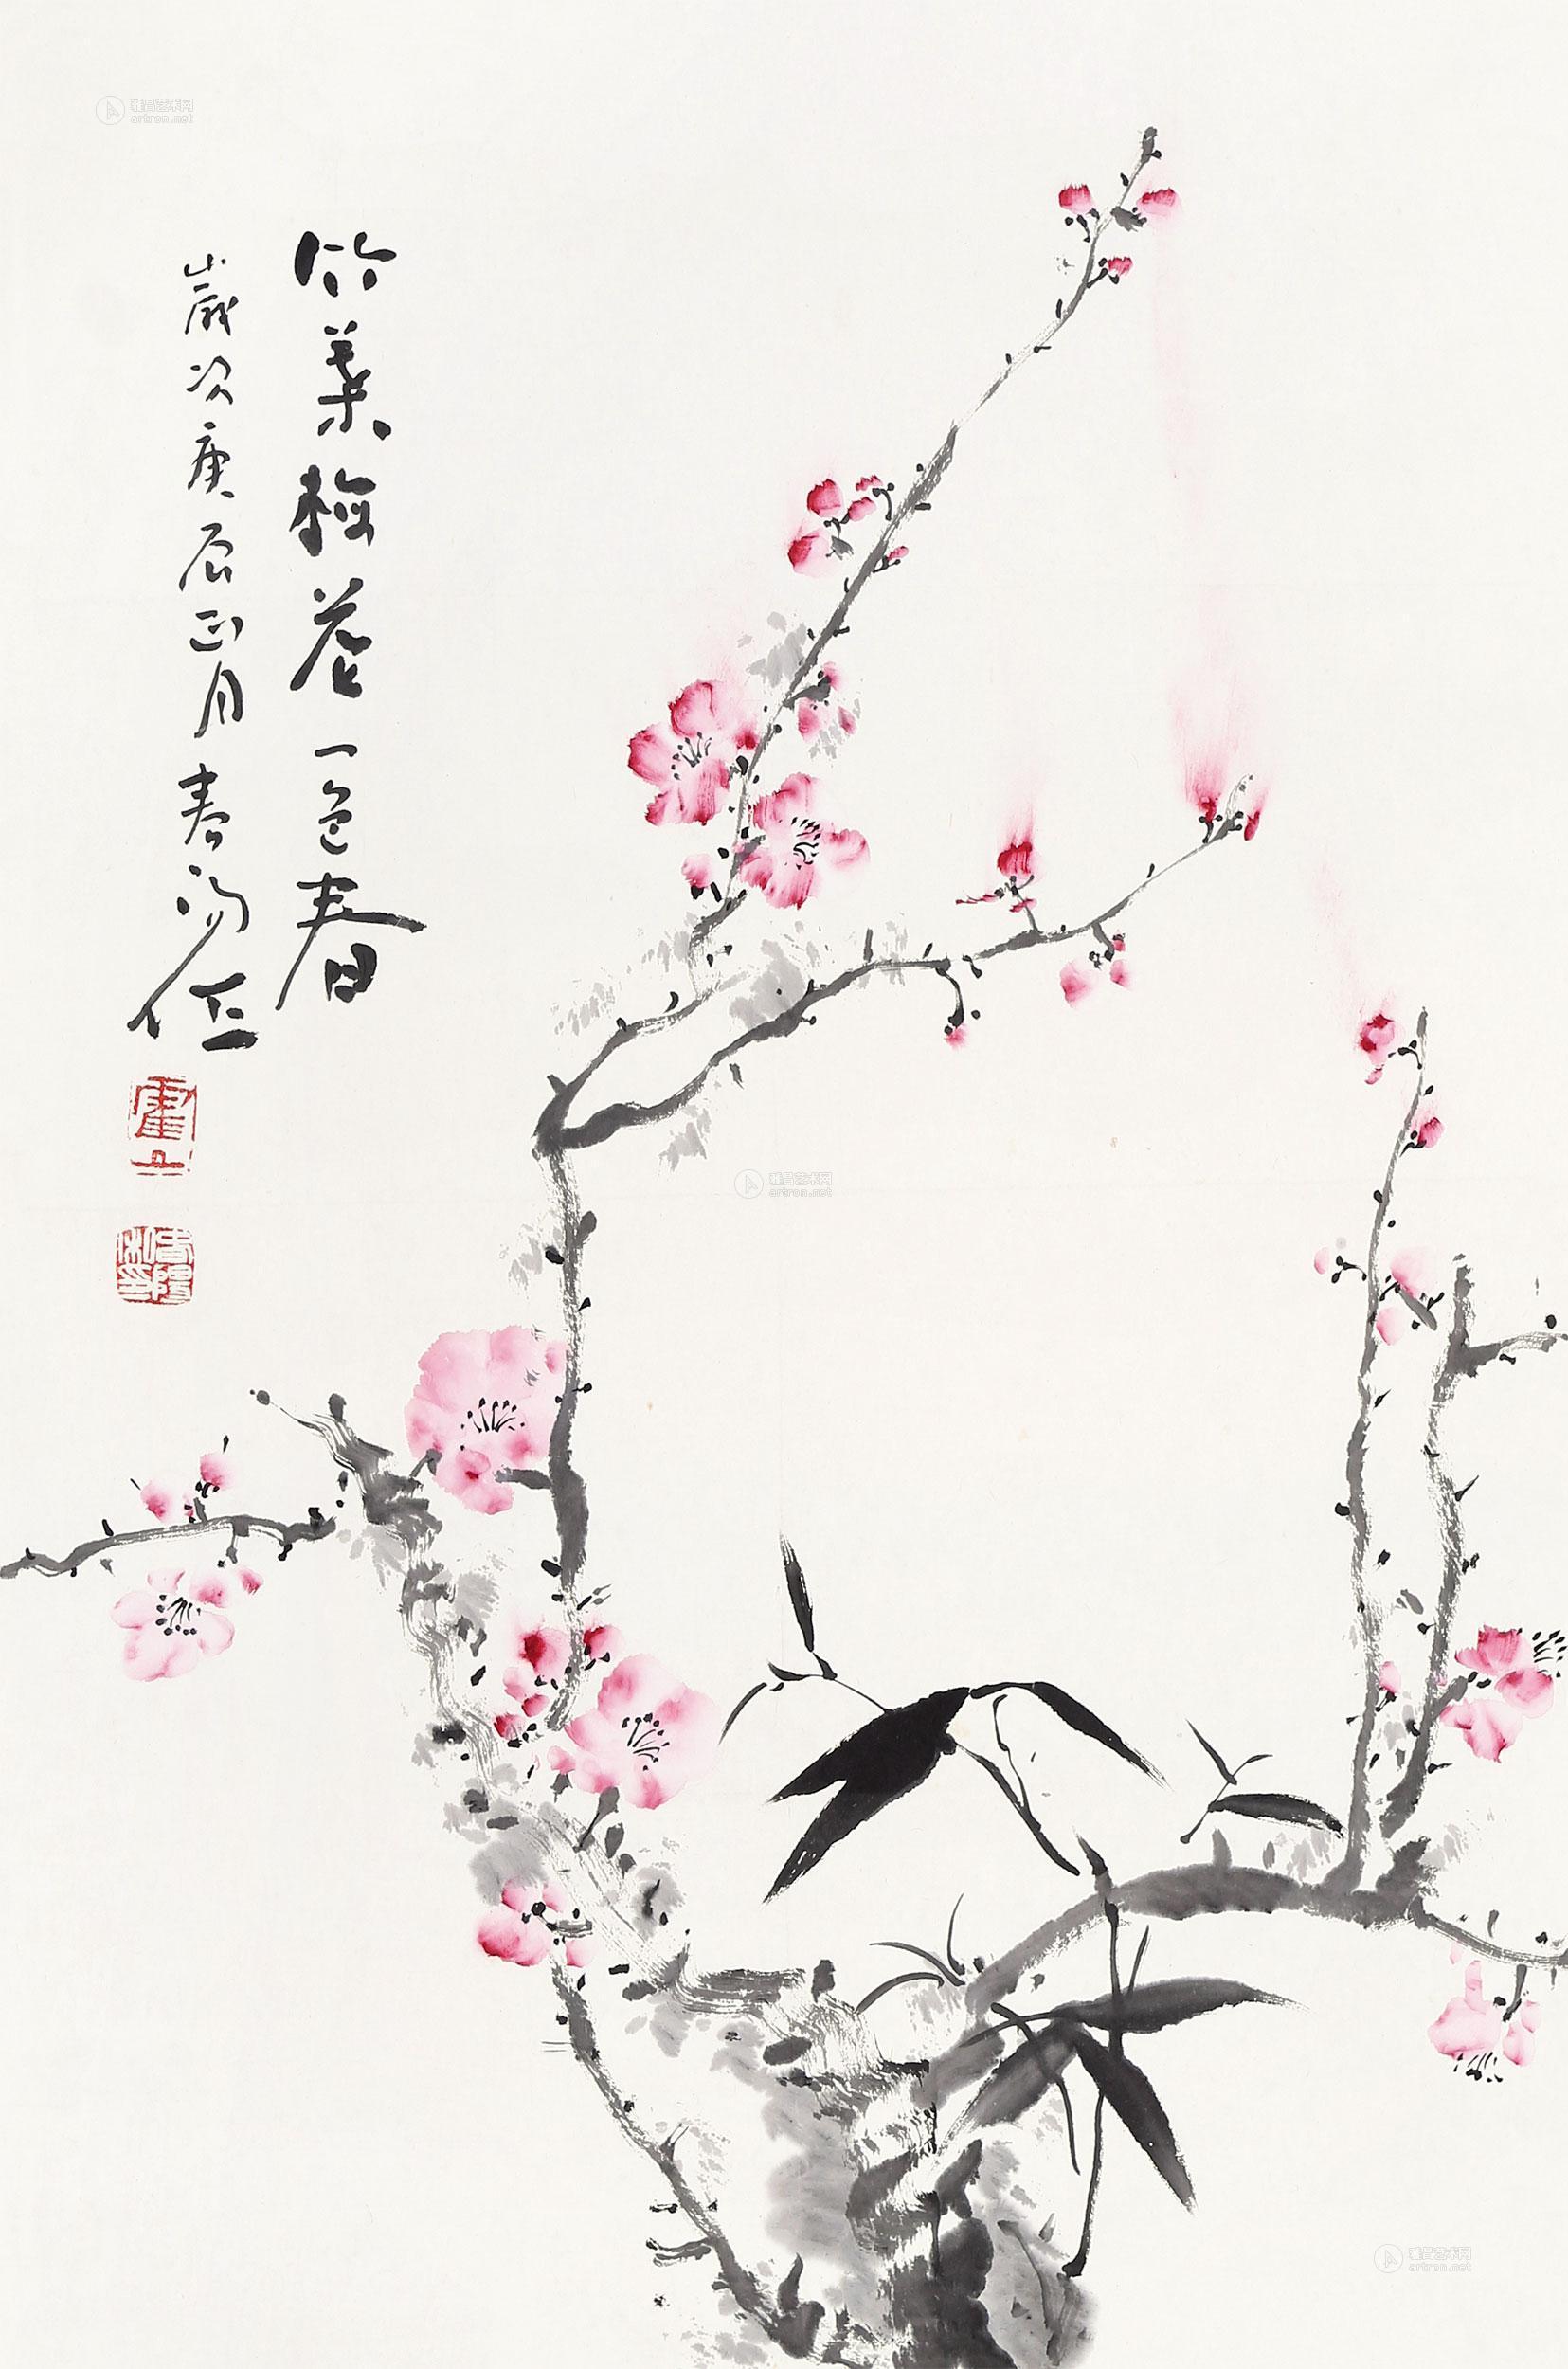 雅昌艺术网
artron.net
竹葉梅花一色春
歲次庚辰正月春陽作
霍
春陽私印
雅昌艺术网
artron.net
雅昌艺术网
artron.net